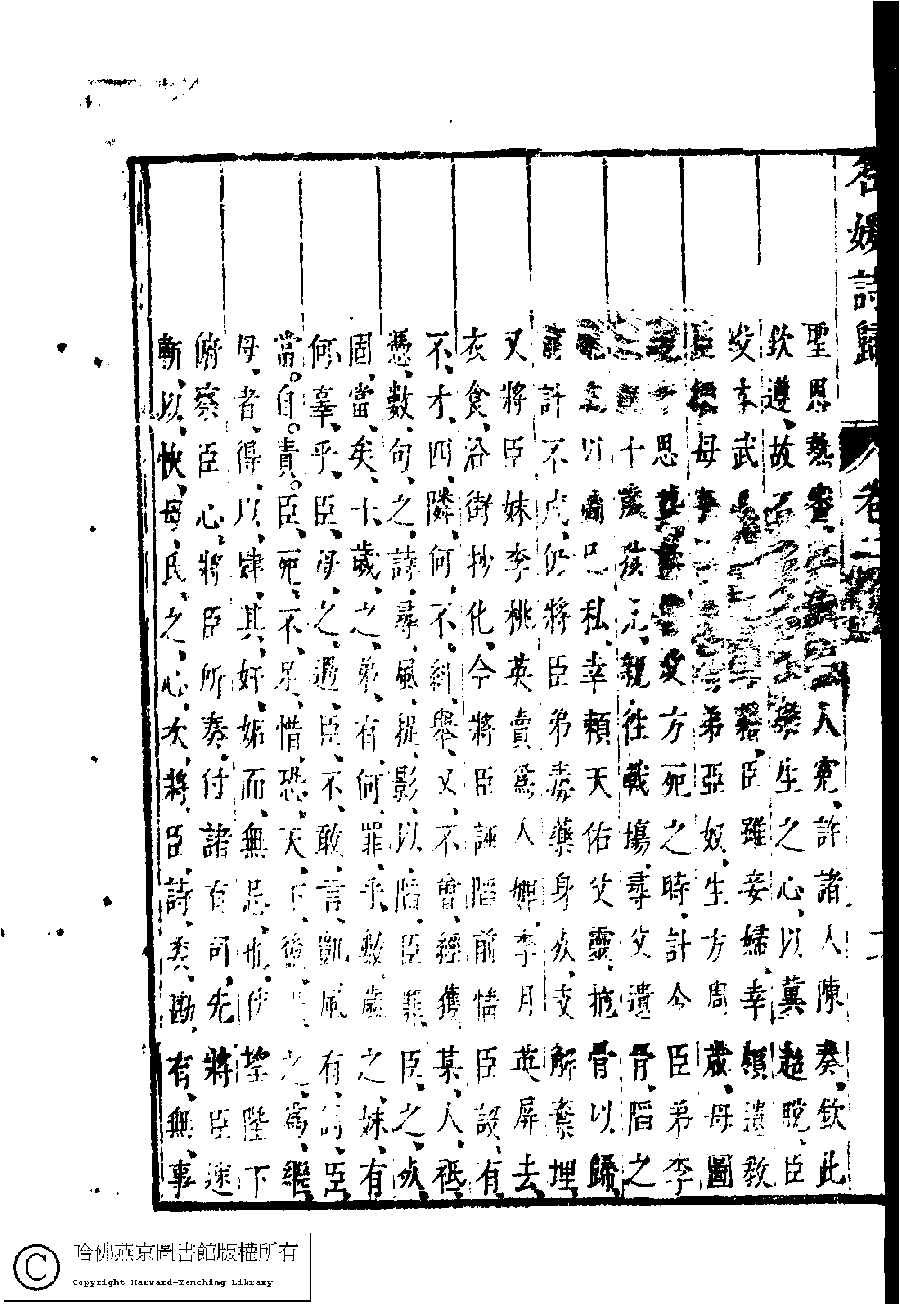 名媛詩歸 卷二
聖恩熱審 人寃許諸人陳奏欽此
欽遵故 生之心以冀超脫臣
父本武 臣雖妾婦幸頗遺教
臣 母 弟亞奴生方周歲母圖
思 父方死之時計令臣弟李
十歲孩兒親往戰場尋父遺骨陷之
以圖己私幸賴天佑父靈抱骨以歸
計不成仍將臣弟毒藥身死支解棄埋
又將臣妹李桃英賣爲人婢李月英屏去
衣食沿街抄化今將臣誣陷前情臣設有
不才四隣何不糾舉又不曾經獲某人秪
憑數句之詩尋風捉影以陷臣罪臣之死
固當矣十歲之弟有何罪乎數歲之妹有
何辜乎臣母之過臣不敢言凱風有詩臣
當自責臣死不足惜恐天下後 之爲繼
母者得以肆其奸妬而無忌也伏望陛下
俯察臣心將臣所奏付諸有司先將臣速
斬以快母氏之心次將臣詩委勘有無事
哈佛燕京圖書館版權所有
Copyright Harvard-Yenching Library